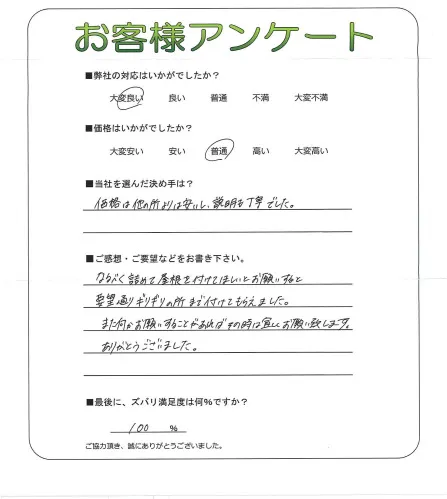 お客様アンケート
■弊社の対応はいかがでしたか？
大変良い 良い 普通 不満 大変不満
■価格はいかがでしたか？
大変安い 安い 普通 高い 大変高い
■当社を選んだ決め手は？
価格は他の所よりは安いし、説明も丁寧でした。
■ご感想・ご要望などをお書き下さい。
なるべく詰めて屋根を付けてほしいとお願いすると
要望通りギリギリの所まで付けてもらえました。
また何かお願いすることがあればその時は宜しくお願い致します。
ありがとうございました。
■最後に、ズバリ満足度は何%ですか？
100 %
ご協力頂き、誠にありがとうございました。